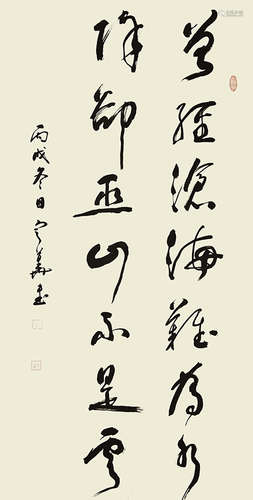 曾經滄海難為水
除卻巫山不是雲
丙戌冬日